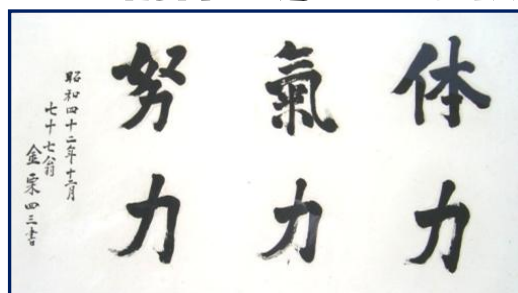 体力
氣力
努力
昭和四十二年十二月
七十七翁
金栗四三書